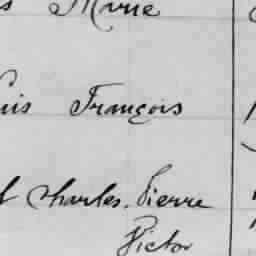 Marie
François
Charles. Pierre
Victor